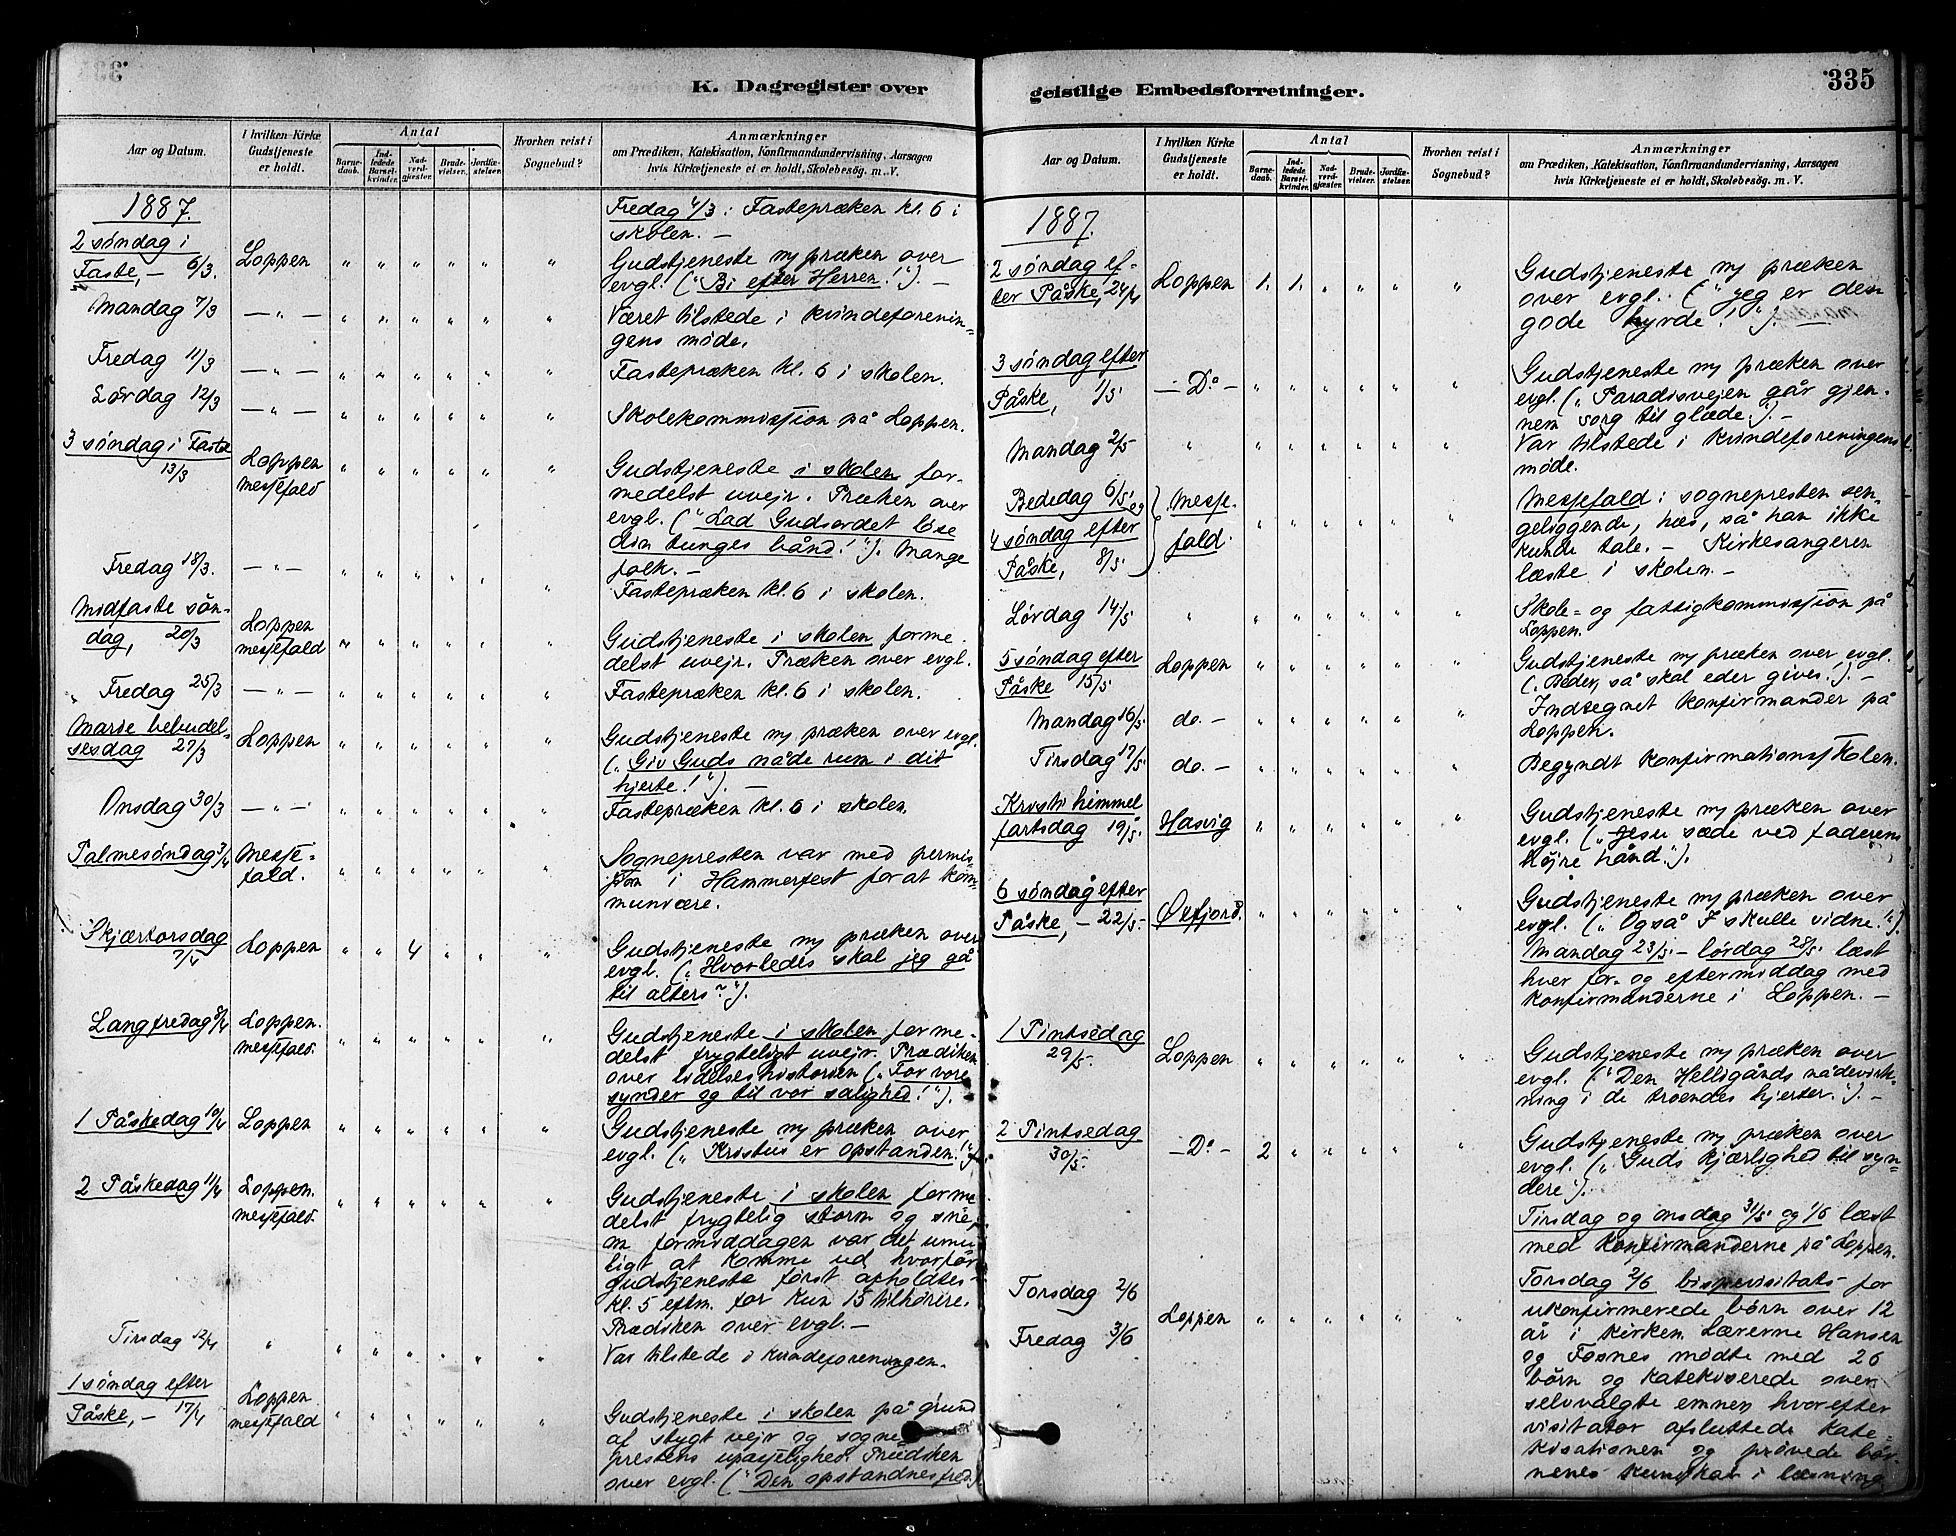 K. Dagregister over
Aar og Datum.
I hvilken Kirke Gudstjeneste er holdt.
Antal
Barnedaab.
Indledede Barselkvinder.
Nadverdgjester.
Brudevielser.
Jordfæstelser.
Hvorhen reist i Sognebud?
Anmærkninger
om Prædiken, Katekisation, Konfirmandundervisning, Aarsagen
hvis Kirketjeneste ei er holdt, Skolebesøg. m. V.
1887.
Fredag 4/3: Fastepræken kl. 6 i
skolen. —
2 søndag i
Faste, — 6/3.
Loppen
" " " " " "
Gudstjeneste m/ præken over
evgl. ("Bi efter Herren!"). —
Mandag 7/3
— " —
" " " " " "
Været tilstede i kvindeforenin-
gens møde.
Fredag 11/3
— " —
" " " " " "
Fastepræken kl. 6 i skolen.
Lørdag 12/3
— " —
" " " " " "
Skolekommission på Loppen.
3 søndag i Faste
13/3
Loppen
messefald
" " " " " "
Gudstjeneste i skolen for-
medelst uvejr. Præken over
evgl. ("Lad Gudsordet løse
din tunges bånd!"). Mange
folk. —
Fredag 18/3.
— " —
" " " " " "
Fastepræken kl. 6 i skolen.
Midfaste søn-
dag, 20/3
Loppen
messefald
" " " " " "
Gudstjeneste i skolen forme-
delst uvejr. Præken over evgl.
Fredag 25/3
— " —
" " " " " "
Fastepræken kl. 6 i skolen.
Mariæ bebudel-
sesdag 27/3
Loppen
" " " " " "
Gudstjeneste m/ præken over evgl.
("Giv Guds nåde rum i dit
hjerte!"). —
Onsdag 30/3
— " —
" " " " " "
Fastepræken kl. 6 i skolen.
Palmesøndag 3/4
Messe-
fald.
" " " " " "
Sognepresten var med permis-
sion i Hammerfest for at kom-
munvære.
Skjærtorsdag
7/4
Loppen
" " 4 " " "
Gudstjeneste m/ præken over
evgl. ("Hvorledes skal jeg gå
til alters?").
Langfredag 8/4
Loppen.
messefald.
" " " " " "
Gudstjeneste i skolen forme-
delst frygteligt uvejr. Prædiken
over lidelseshistorien ("For vore
synder og til vor salighed!").
1 Påskedag 10/4
Loppen
" " " " " "
Gudstjeneste m/ præken over
evgl. ("Kristus er opstanden!")
2 Påskedag 11/4
Loppen.
messefald.
" " " " " "
Gudstjeneste i skolen forme
delst frygtelig storm og sne,
om formiddagen var det umu-
ligt at komme ud hvorfor
gudstjeneste først afholdtes
kl. 5 eftm. for kun 15 tilhørere.
Prædiken over evgl. —
Tirsdag 12/4
"
" " " " " "
Var tilstede i kvindeforeningen.
1 søndag efter
Påske, — 17/4
Loppen
messefald
" " " " " "
Gudstjeneste i skolen på grund
af stygt vejr og sogne-
prestens upasselighed. Prædiken
over evgl. ("Den opstandnes fred")
geistlige Embedsforretninger.
335
Aar og Datum.
I hvilken Kirke Gudstjeneste er holdt.
Antal
Barnedaab.
Indledede Barselkvinder.
Nadverdgjester.
Brudevielser.
Jordfæstelser.
Hvorhen reist i Sognebud?
Anmærkninger
om Prædiken, Katekisation, Konfirmandundervisning, Aarsagen
hvis Kirketjeneste ei er holdt, Skolebesøg. m. V.
1887.
2 søndag ef-
ter Påske, 24/4
Loppen
1. 1. " " " "
Gudstjeneste m/ præken
over evgl. ("Jeg er den
gode hyrde!"). —
3 søndag efter
Påske, 1/5
— Do —
" " " " " "
Gudstjeneste m/ præken over
evgl. ("Paradisvejen går gjen-
nem sorg til glæde."). —
Mandag 2/5
"
" " " " " "
Var tilstede i kvindeforeningens
møde.
Bededag 6/5 og
4 søndag efter
Påske, 8/5
Messe-
fald.
" " " " " "
Messefald: sognepresten sen-
geliggende, hæs, så han ikke
kunde tale. — Kirkesangeren
læste i skolen. —
Lørdag 14/5
"
" " " " " "
Skole- og fattigkommission på
Loppen.
5 søndag efter
Påske 15/5
Loppen
" " " " " "
Gudstjeneste m/ præken over evgl.
("Beder, så skal eder gives!"). —
Mandag 16/5
do. —
" " " " " "
Indtegnet konfirmander på
Loppen.
Tirsdag 17/5
do. —
" " " " " "
Begyndt konfirmationsskolen.
Kristi himmel
fartsdag 19/5.
Hasvig
" " " " " "
Gudstjeneste m/ præken over
evgl. ("Jesu sæde ved faderens
højre hånd.").
6 søndag efter
Påske, — 22/5.
Øxfjord.
" " " " " "
Gudstjeneste m/ præken over
evgl. ("Også I skulle vidne.")
Mandag 23/5 — lørdag 28/5 læst
hver for- og eftermiddag med
konfirmanderne i Loppen. —
1 Pintsedag
29/5.
Loppen
" " " " " "
Gudstjeneste m/ præken over
evgl. ("Den Helligånds nådevirk-
ning i de troendes hjerter."). —
2 Pintsedag
30/5.
— Do —
2 " " " " "
Gudstjeneste m/ præken over
evgl. ("Guds kjærlighed til syn-
dere").
Tirsdag og onsdag 31/5 og 1/6 læst
med konfirmanderne på Loppen.
Torsdag 2/6
Fredag 3/6
Loppen
" " " " " "
Torsdag 2/6 bispevisitats for
ukonfirmerede børn over 12
år i kirken. Lærerne Hansen
og Fosnes mødte med 26
børn og katekiserede over
selvvalgte emner hvorefter
visitator afsluttede kate-
kisationen og prøvede bør-
nenes kundskab i læsning